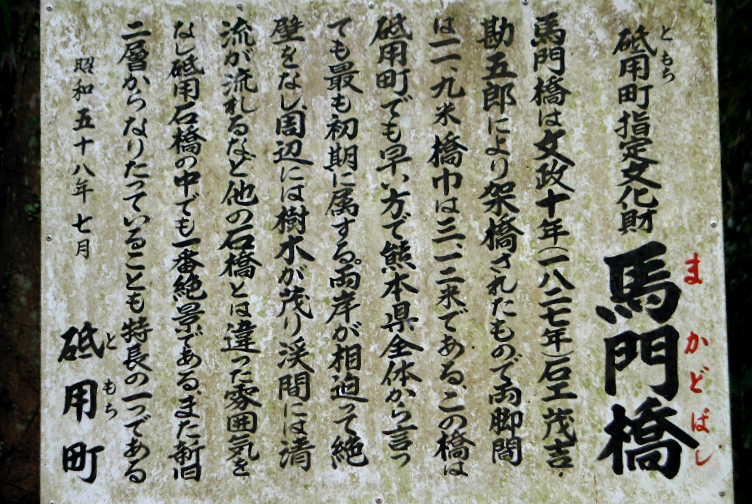 砥用町指定文化財
ともち
馬門橋
まかどばし
馬門橋は文政十年(一八二七年)石工茂吉・
勘五郎により架橋されたもので両脚間
は一一、九米橋巾は三、一二米である、この橋は
砥用町でも早い方で熊本県全体から言っ
ても最も初期に属する。両岸が相迫って絶
壁をなし周辺には樹木が茂り渓間には清
流が流れるなど他の石橋とは違った雰囲気を
なし砥用石橋の中でも一番絶景である、また新旧
二層からなりたっていることも特長の一つである
昭和五十八年七月
砥用町
ともち